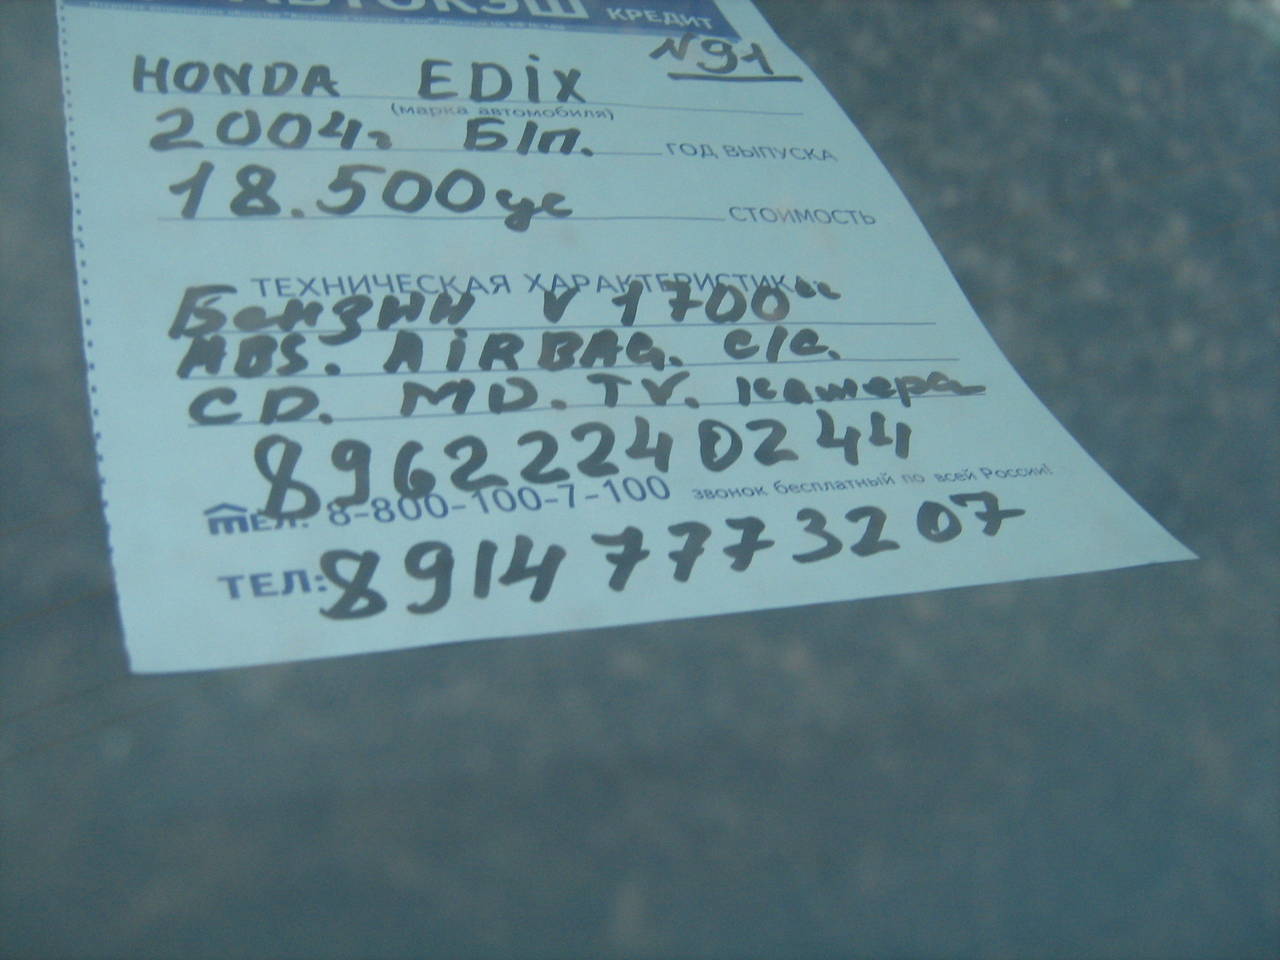 АВТОКЭШ КРЕДИТ
N91
HONDA EDiX
(марка автомобиля)
2004г Б/п. ГОД ВЫПУСКА
18.500 ус СТОИМОСТЬ
ТЕХНИЧЕСКАЯ ХАРАКТЕРИСТИКА
Бензин V 1700
ABS. AiRBAG. с/с.
CD. MD. TV. камера
89622240244
ТЕЛ: 8-800-100-7-100 звонок бесплатный по всей России!
ТЕЛ: 89147773207